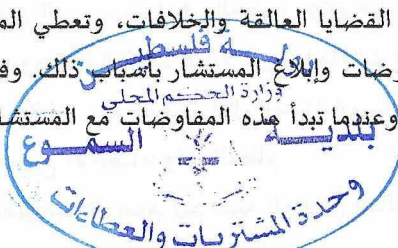 القضايا العالقة والخلافات، وتعطي
وضات وإبلاغ المستشار بأسباب ذلك.
وعندما تبدأ هذه المفاوضات مع
دولة فلسطين
وزارة الحكم المحلي
بلدية السموع
وحدة المشتريات والعطاءات